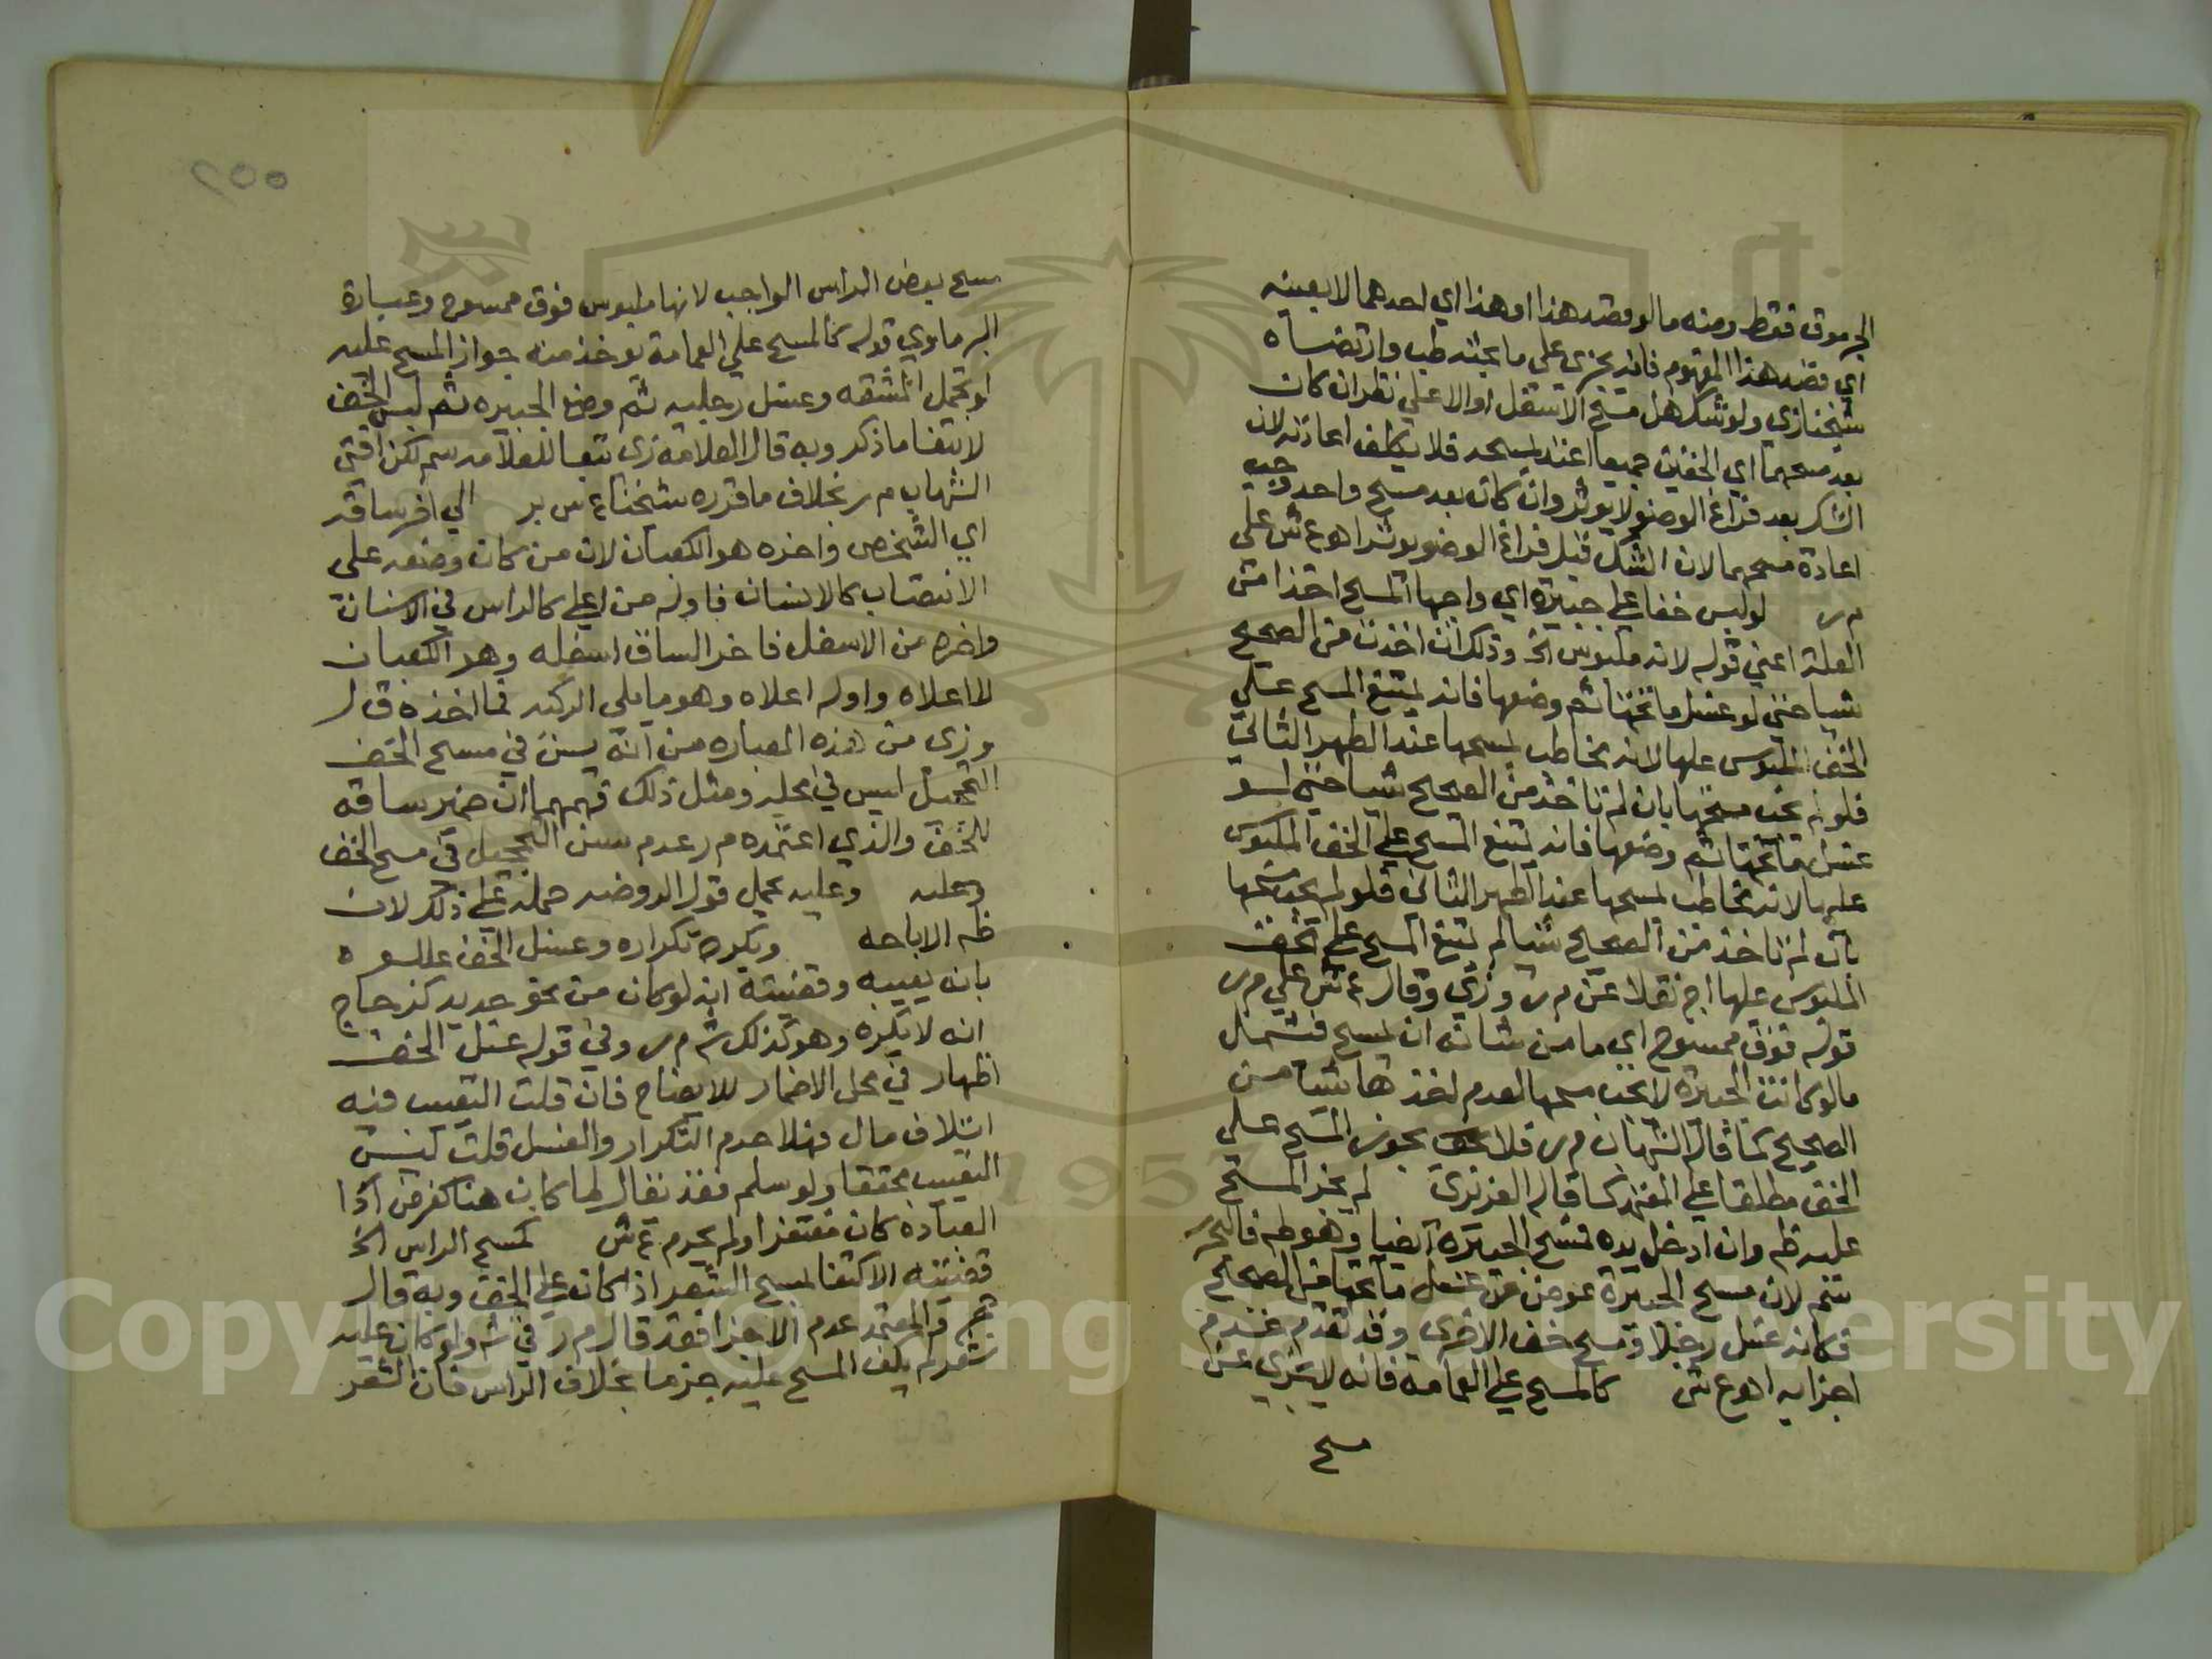 الجرموق فقط ومنه ما لو قصد هذا او هذا اي احدهما لا بعينه
اي قصد هذا المفهوم فانه يجزى على ما بحثه طب وارتضاه
شيخنا زي ولو شك هل مسح الاسفل او الاعلي نظر ان كان
بعد مسحهما اي الخفين جميعا اعتد بمسحه فلا يكلف اعادته لان
الشك بعد فراغ الوضوء لا يوثر وان كان بعد مسح واحد وجب
اعادة مسحهما لان الشك قبل فراغ الوضو يوثر اهـ ع ش على
م ر لو لبس خفا علي جبيرة اي واجبها المسح اخذا من
العلة اعني قوله لانه ملبوس الخ وذلك ان اخذت من الصحيح
شيا حتي لو غسل ما تحتها ثم وضعها فانه يمتنع المسح علي
الخف الملبوس عليها لانه يخاطب بمسحها عند الطهر الثاني
فلو لم يجب مسحها بان لم تاخذ من الصحيح شيا حتي لو
غسل ما تحتها ثم وضعها فانه يمتنع المسح علي الخف الملبوس
عليها لانه يخاطب بمسحها عند الطهر الثاني فلو لم يجب مسحها
بان لم تاخذ من الصحيح شيا لم يمتنع المسح علي الخف
الملبوس عليها اج نقلا عن م ر و زي وقال ع ش علي م ر
قوله فوق ممسوح اي ما من شانه ان يمسح فشمل
ما لو كانت الجبيرة لا يجب مسحها لعدم اخذها شيا من
الصحيح كما قاله الشهاب م ر فلا يجوز المسح علي
الخف مطلقا علي المعتمد كما قاله العزيزي لم يجز المسح
عليه ظ وان ادخل يده فمسح الجبيرة ايضا وهو ط
سم لان مسح الجبيرة عوض عن غسل ما تحتها من الصحيح
فكانه غسل رجلا ومسح خف الاخرى وقد تقدم عدم
اجزايه اهـ ع ش كالمسح علي العمامة فانه لا يجزي عن
مسح
مسح بعض الراس الواجب لانها ملبوس فوق ممسوح وعبارة
البرماوي قوله كالمسح علي العمامة يوخذ منه جواز المسح عليه
لو تحمل المشقه وغسل رجليه ثم وضع الجبيره ثم لبس الخف
لانتفا ما ذكر وبه قال العلامة زي تبعا للعلامه سم لكن افتى
الشهاب م ر بخلاف ما قرره شيخنا ع س بر الي اخر ساقه
اي الشخص واخره هو الكعبان لان من كان وضعه على
الانتصاب كالانسان فاوله من اعلي كالراس في الانسان
واخره من الاسفل فاخر الساق اسفله وهو الكعبان
لا اعلاه واوله اعلاه وهو ما يلي الركبه فما اخذه ق ل
و زي من هذه العباره من انه يسن في مسح الخف
التحجيل ليس في محله ومثل ذلك فهمهما ان ضمير ساقه
للخف والذي اعتمده م ر عدم سن التحجيل في مسح الخف
وعليه وعليه يحمل قول الروضه حمله علي ذلك لان
ظ الاباحه ويكره تكراره وغسل الخف علله
بانه يعيبه وقضيته انه لو كان من نحو حديد كزجاج
انه لا يكره وهو كذلك شه م ر وفي قوله غسل الخف
اظهار في محل الاضمار للايضاح فان قلت التعييب فيه
اتلاف مال فهلا حرم التكرار والغسل قلت ليس
التعييب محققا ولو سلم فقد يقال لما كان هنا لغرض اذا
العبادة كان مغتفرا ولم يحرم ع ش كمسح الراس الخ
قضيته الاكتفا بمسح الشعر اذا كان علي الخف وبه قال
والمعتمد عدم الاجزا فقد قال م ر في شه ولو كان عليه
شعر لم يكف المسح عليه جزما بخلاف الراس فان الشعر
٢٥٥
1957
Copyright © King Saud University